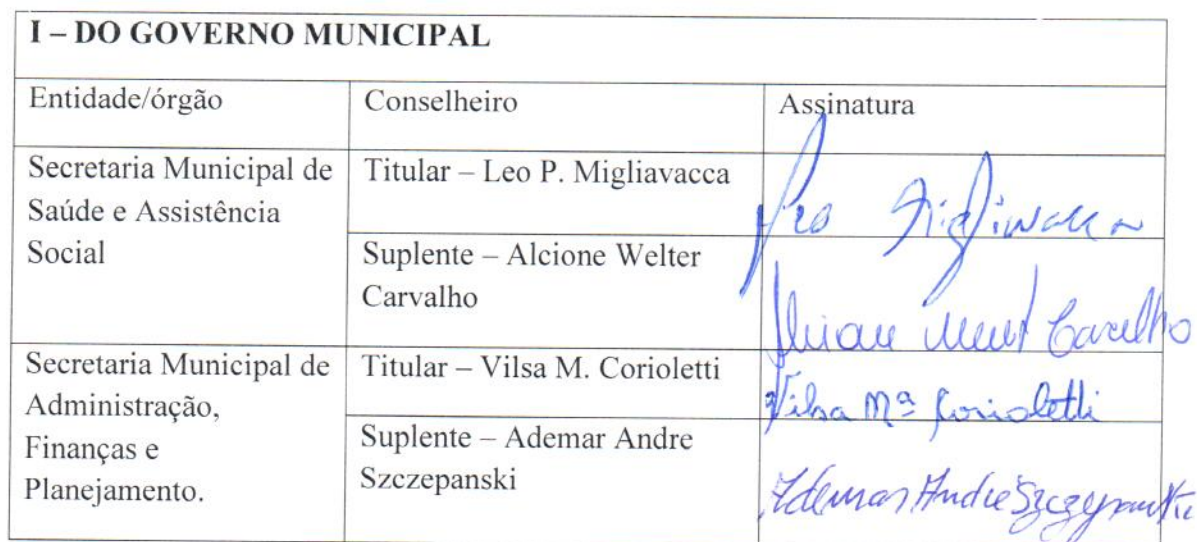 I – DO GOVERNO MUNICIPAL
Entidade/órgão
Conselheiro
Assinatura
Secretaria Municipal de
Saúde e Assistência
Social
Titular – Leo P. Migliavacca
Leo Migliavacca
Suplente – Alcione Welter
Carvalho
Carvalho
Secretaria Municipal de
Administração,
Finanças e
Planejamento.
Titular – Vilsa M. Corioletti
Vilsa Mª Corioletti
Suplente – Ademar Andre
Szczepanski
Ademar Andre Szczepanski